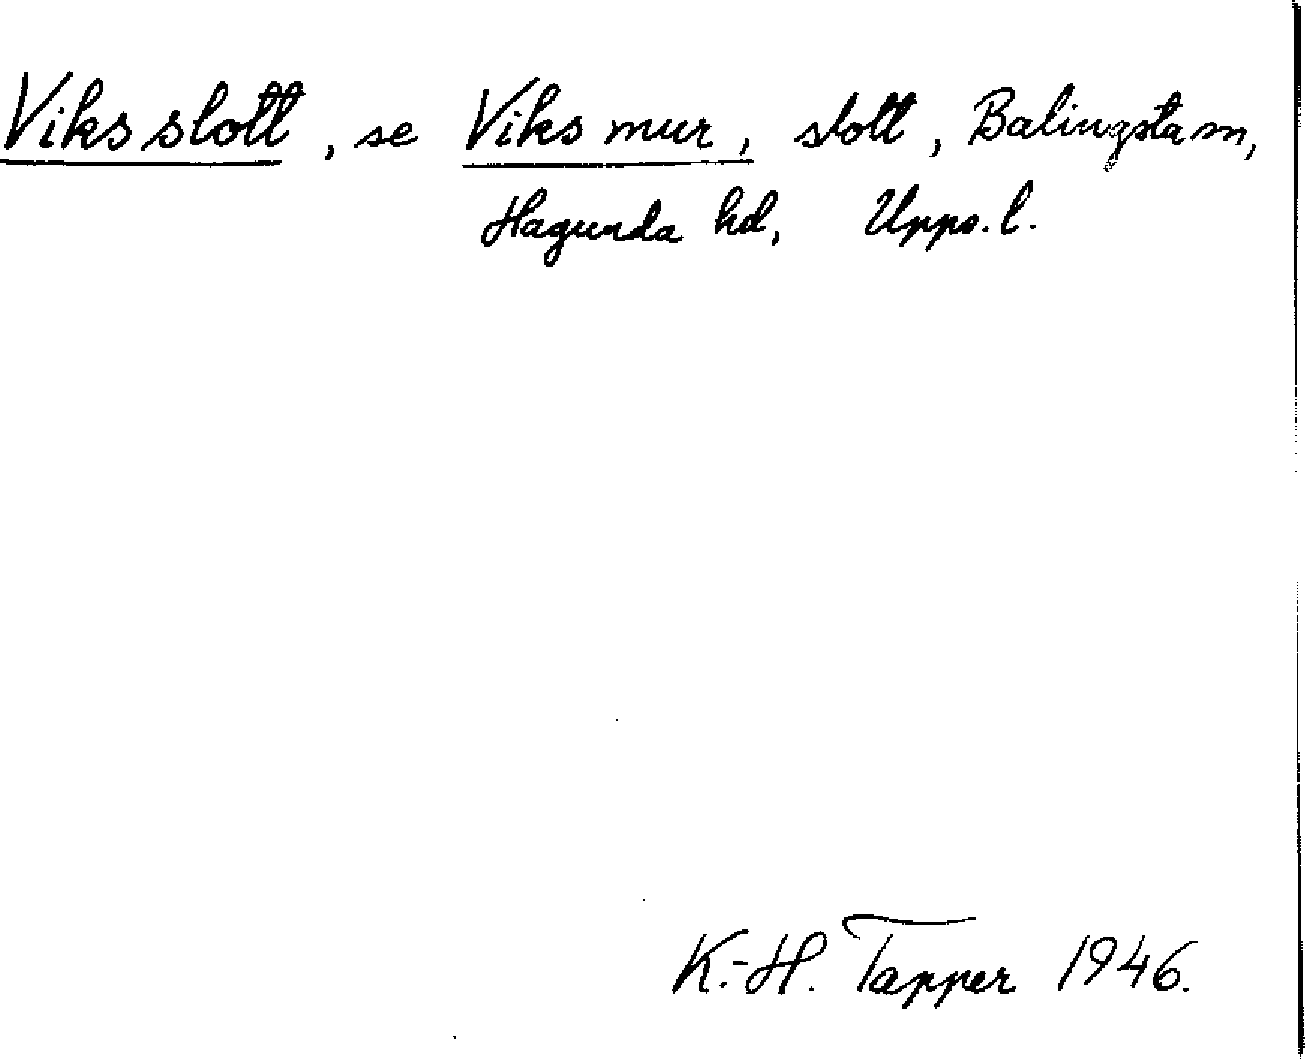 Viks slott, se Viks mur, slott, Balingsta sn,
Hagunda hd, Upps. l.
K.-H. Tapper 1946.